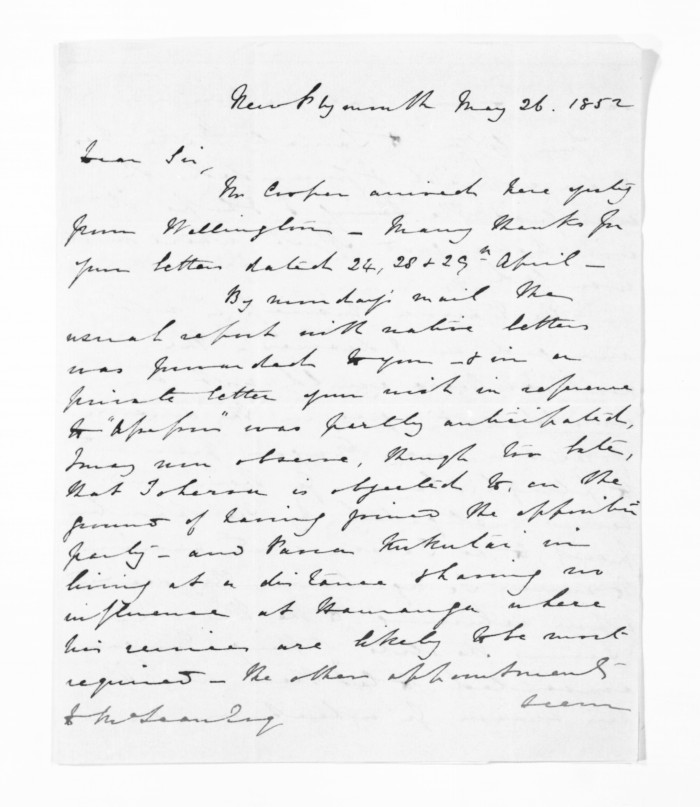 New Plymouth May 26. 1852
Dear Sir,
Mr Cooper arrived here yesty
from Wellington – Many thanks for
your letters dated 24, 28 & 29th April –
By monday's mail the
usual report with native letters
was forwarded to you – & in a
private letter your wish in reference
to "" was partly anticipated,
I may now observe, though too late,
that is objected to, on the
ground of having joined the opposite
party – and Kukutai in
living at a distance & having no
influence at where
his services are likely to be most
required – The other appointments
seem
D McLean Esq